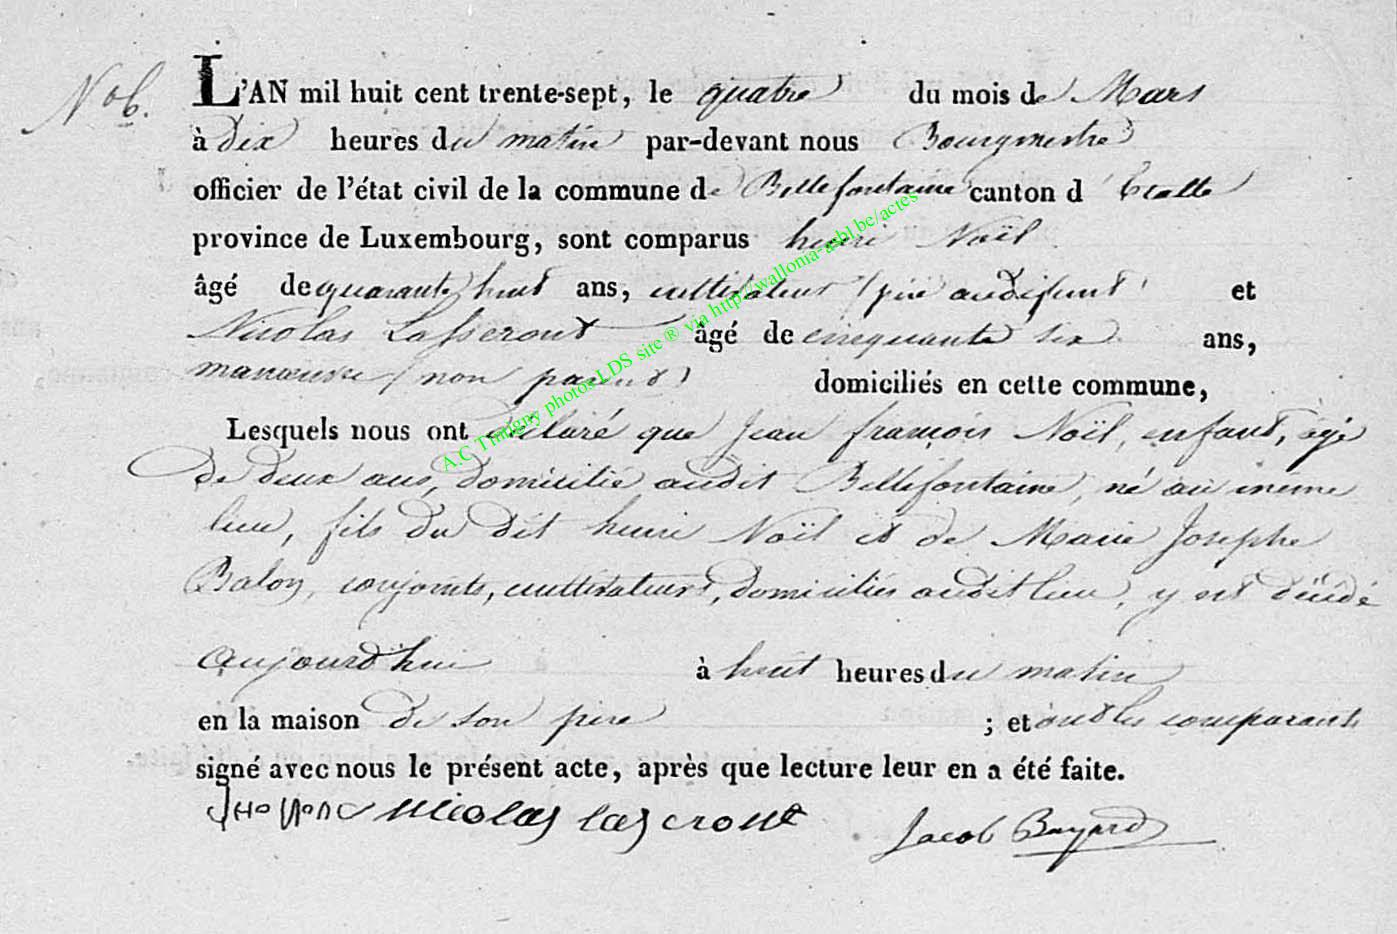 No 6.
L'AN mil huit cent trente-sept, le quatre du mois de Mars
à dix heures du matin par-devant nous Bourgmestre
officier de l'état civil de la commune de Bellefontaine canton d'Etalle
province de Luxembourg, sont comparus henri Noël
âgé de quarante huit ans, cultivateur (père au défunt) et
Nicolas Lasseront âgé de cinquante six ans,
manœuvre (non parent) domiciliés en cette commune,
Lesquels nous ont déclaré que Jean françois Noël, enfant, agé
de deux ans, domicilié audit Bellefontaine, né au même
lieu, fils du dit henri Noël et de Marie Josephe
Balon, conjoints, cultivateurs, domiciliés audit lieu, y est décédé
aujourd'hui à huit heures du matin
en la maison de son père ; et ont les comparants
signé avec nous le présent acte, après que lecture leur en a été faite.
nicolas lascront Jacob Bayard
A.C Tintigny photos LDS site ® via http://wallonia-asbl.be/actes